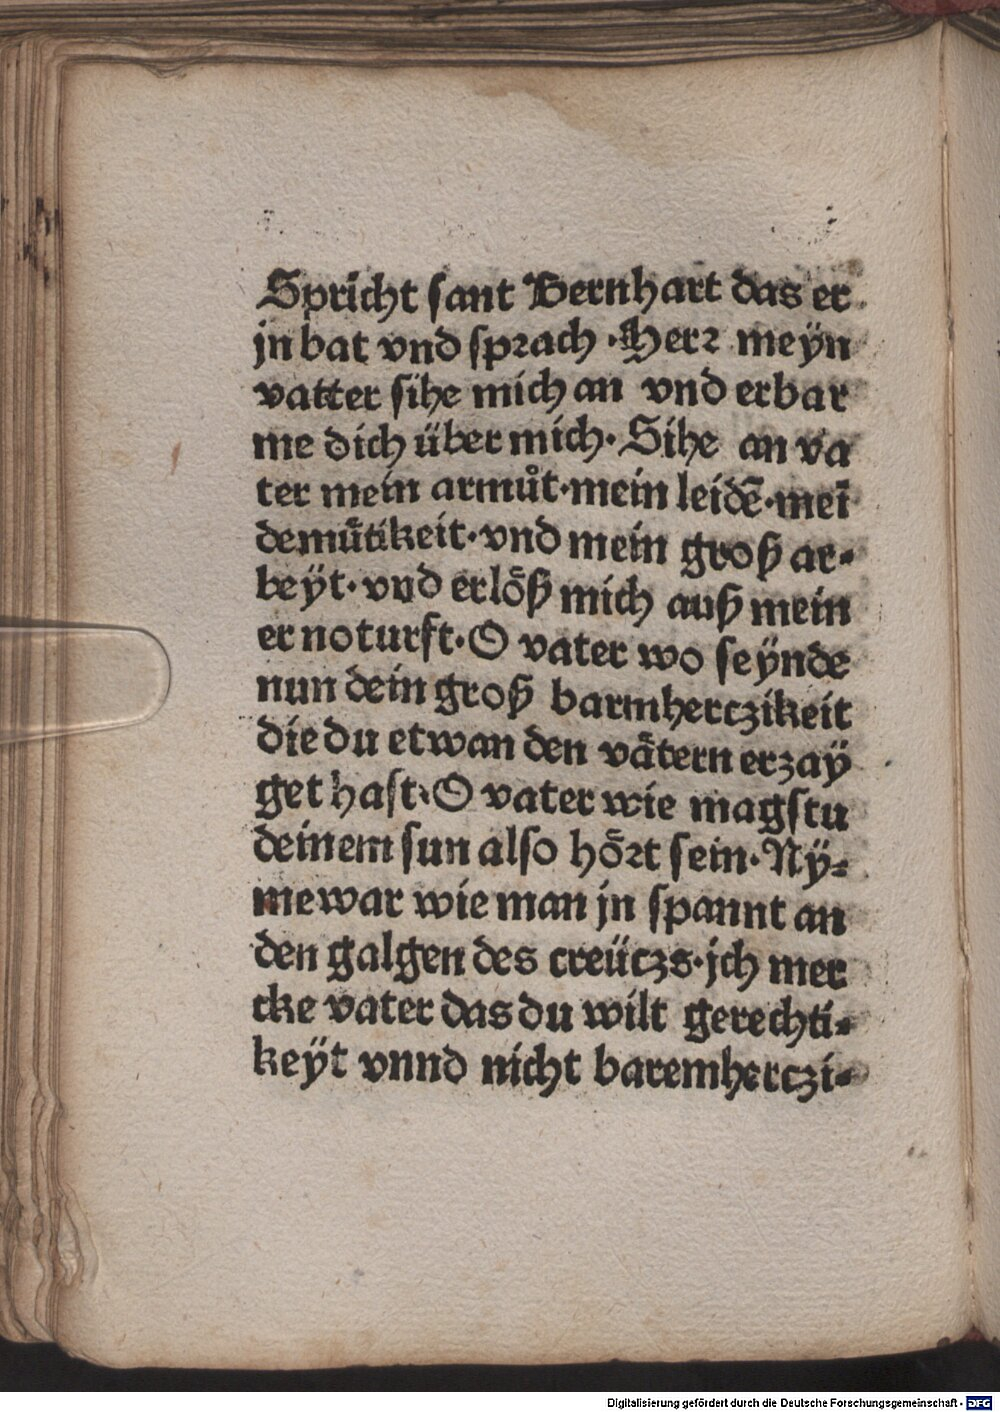 Spricht sant Bernhart das er
jn bat vnd sprach · Herr meyn
vatter sihe mich an vnd erbar
me dich über mich · Sihe an va
ter mein armůt · mein leidē · meī
demůtikeit · vnd mein groß ar⸗
beÿt · vnd erlöß mich auß mein
er noturft · O vater wo seÿnde
nun dein groß barmherczikeit
die du etwan den vätern erzaÿ
get hast: O vater wie magstu
deinem sun also hört sein · Nÿ⸗
me war wie man jn spannt an
den galgen des creüczs · jch mer
cke vater das du wilt gerechti⸗
keÿt vnnd nicht baremherczi⸗
Digitalisierung gefördert durch die Deutsche Forschungsgemeinschaft - DFG